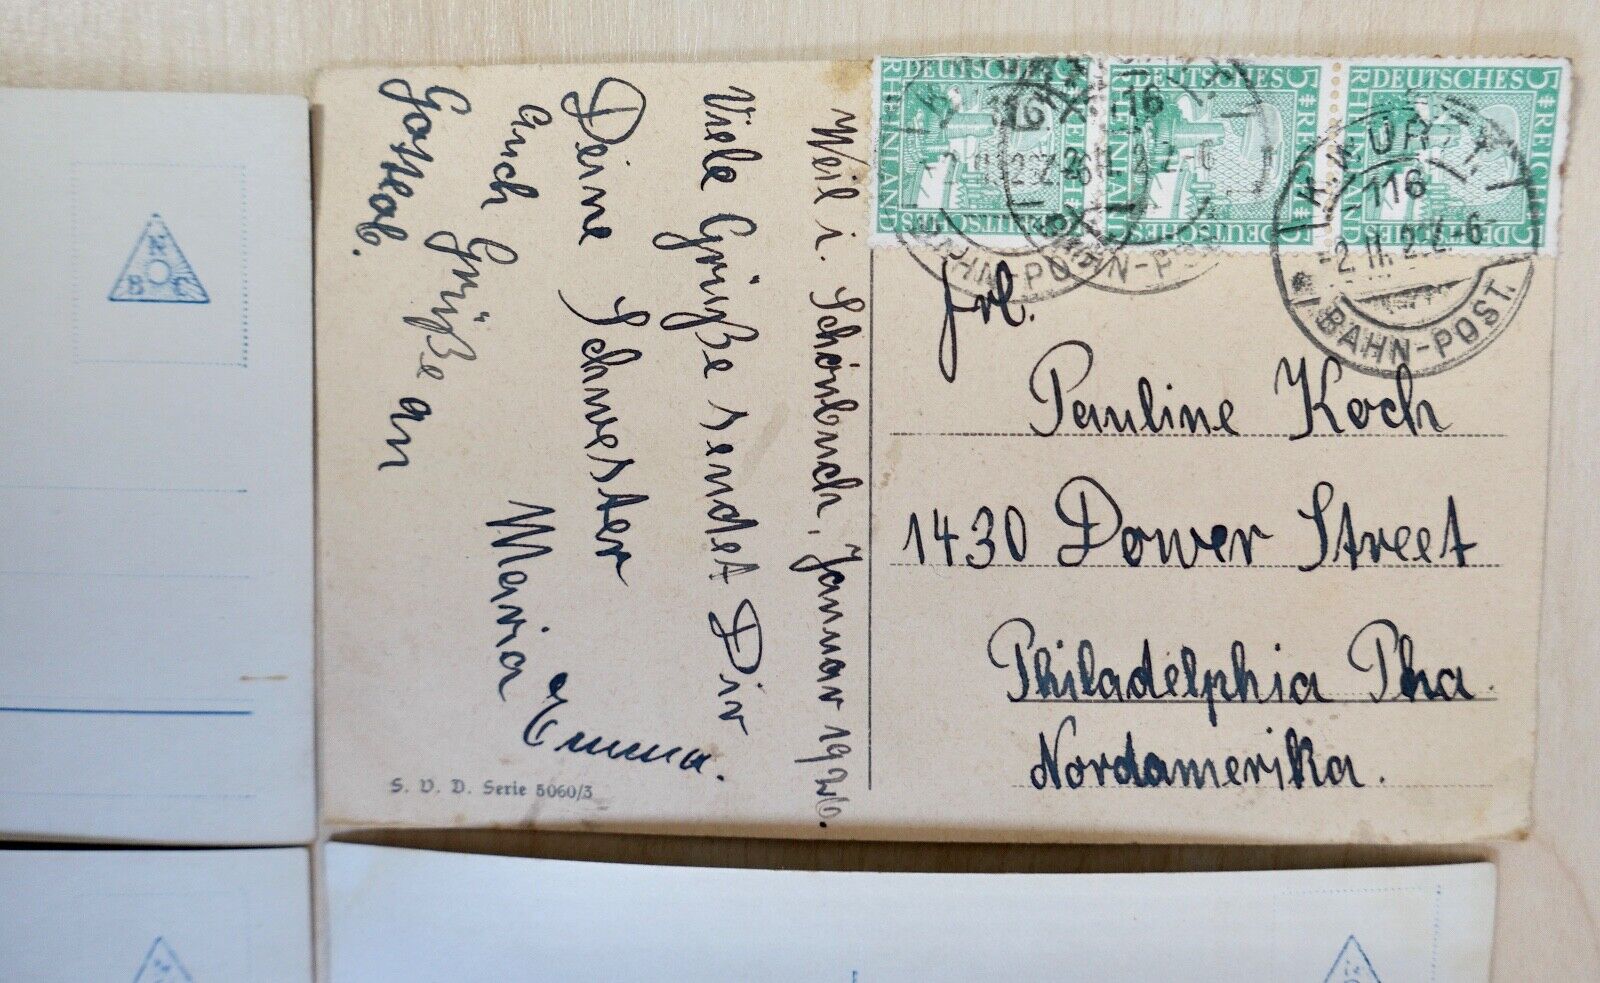 Weil i. Schönbuch, Januar 1926.
Viele Grüße sendet Dir
Deine Schwester
Emma.
Auch Grüße an
Maria
S. V. D. Serie 5060/3
DEUTSCHES REICH
RHEINLAND
5
DEUTSCHES REICH
RHEINLAND
5
DEUTSCHES REICH
RHEINLAND
5
116
BAHN-POST.
Frl.
Pauline Koch
1430 Dower Street
Philadelphia Pha.
Nordamerika.